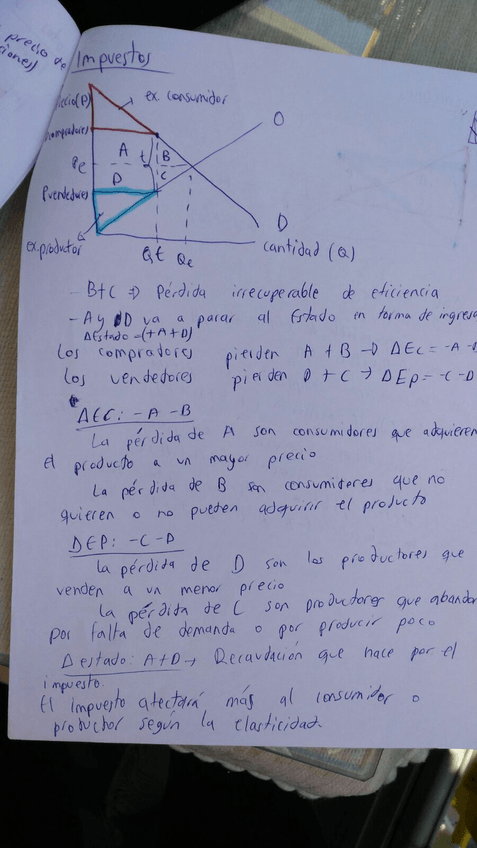 precio de
ciones)
Impuestos
ecio(P)
ex. consumidor
O
compradores
A
t
B
Pe
C
D
Pvendedores
D
ex.productor
Qt
Qe
cantidad (Q)
- B+C => Pérdida irrecuperable de eficiencia
- A y D va a parar al Estado en forma de ingreso
ΔEstado = (+A+D)
Los compradores pierden A + B → ΔEc = -A -
Los vendedores pierden D + C → ΔEp = -C -D
ΔEC: -A -B
La pérdida de A son consumidores que adquieren
el producto a un mayor precio
La pérdida de B son consumidores que no
quieren o no pueden adquirir el producto
ΔEP: -C -D
La pérdida de D son los productores que
venden a un menor precio
La pérdida de C son productores que abandon
por falta de demanda o por producir poco
Δestado: A+D → Recaudación que hace por el
impuesto.
El impuesto afectará más al consumidor o
productor según la elasticidad.